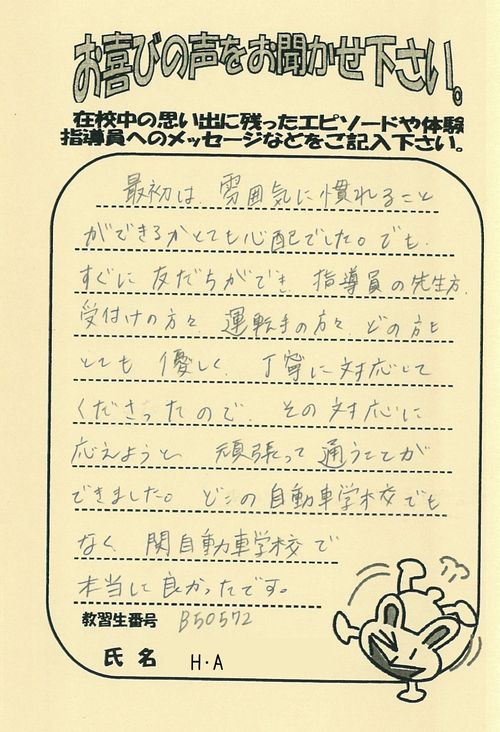 お喜びの声をお聞かせ下さい。
在校中の思い出に残ったエピソードや体験
指導員へのメッセージなどをご記入下さい。
最初は、雰囲気に慣れること
ができるかとても心配でした。でも、
すぐに友だちができ、指導員の先生方、
受付けの方々、運転手の方々、どの方も
とても優しく、丁寧に対応して
くださったので、その対応に
応えようと、頑張って通うことが
できました。どこの自動車学校でも
なく、関自動車学校で
本当に良かったです。
教習生番号 B50572
氏名 H・A